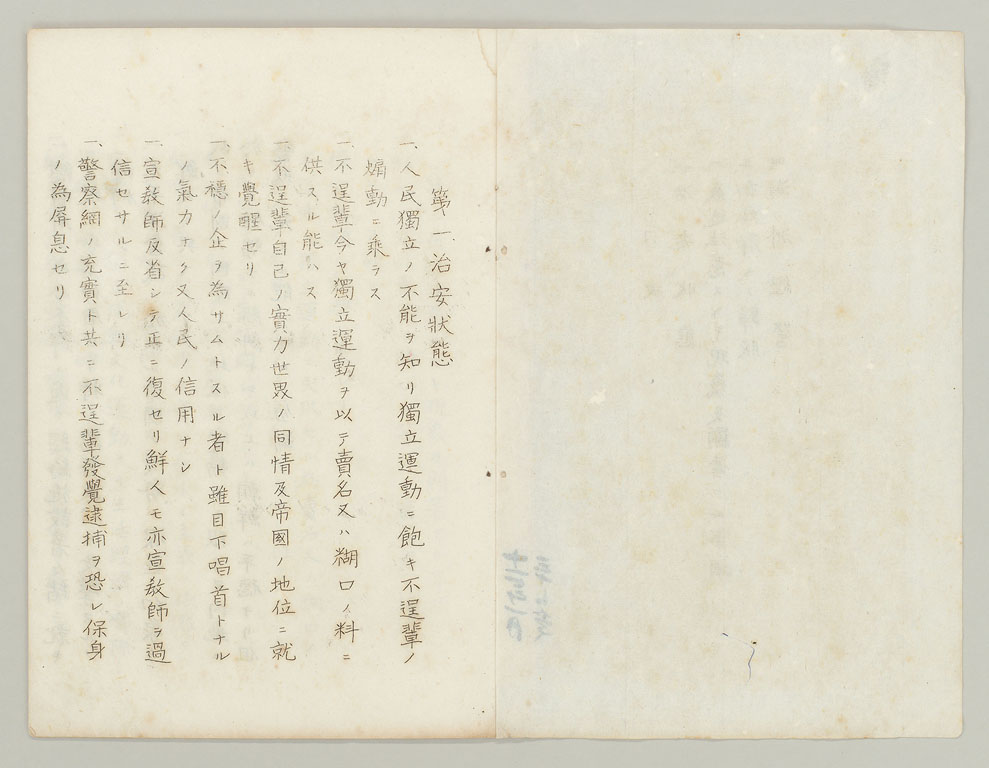 第一、治安狀態
一、人民獨立ノ不能ヲ知リ獨立運動ニ飽キ不逞輩ノ
煽動ニ乗ラス
一、不逞輩今ヤ獨立運動ヲ以テ賣名又ハ糊口ノ料ニ
供スル能ハス
一、不逞輩自己ノ實力世界ノ同情及帝國ノ地位ニ就
キ覺醒セリ
一、不穏ノ企ヲ為サムトスル者ト雖目下唱首トナル
ノ氣力ナク又人民ノ信用ナシ
一、宣教師反省シテ正ニ復セリ鮮人モ亦宣教師ヲ過
信セサルニ至レリ
一、警察網ノ充實ト共ニ不逞輩發覺逮捕ヲ恐レ保身
ノ為屏息セリ